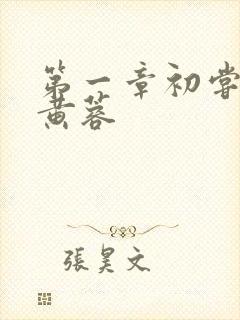 第一章初嘗
黄蓉
張昊文